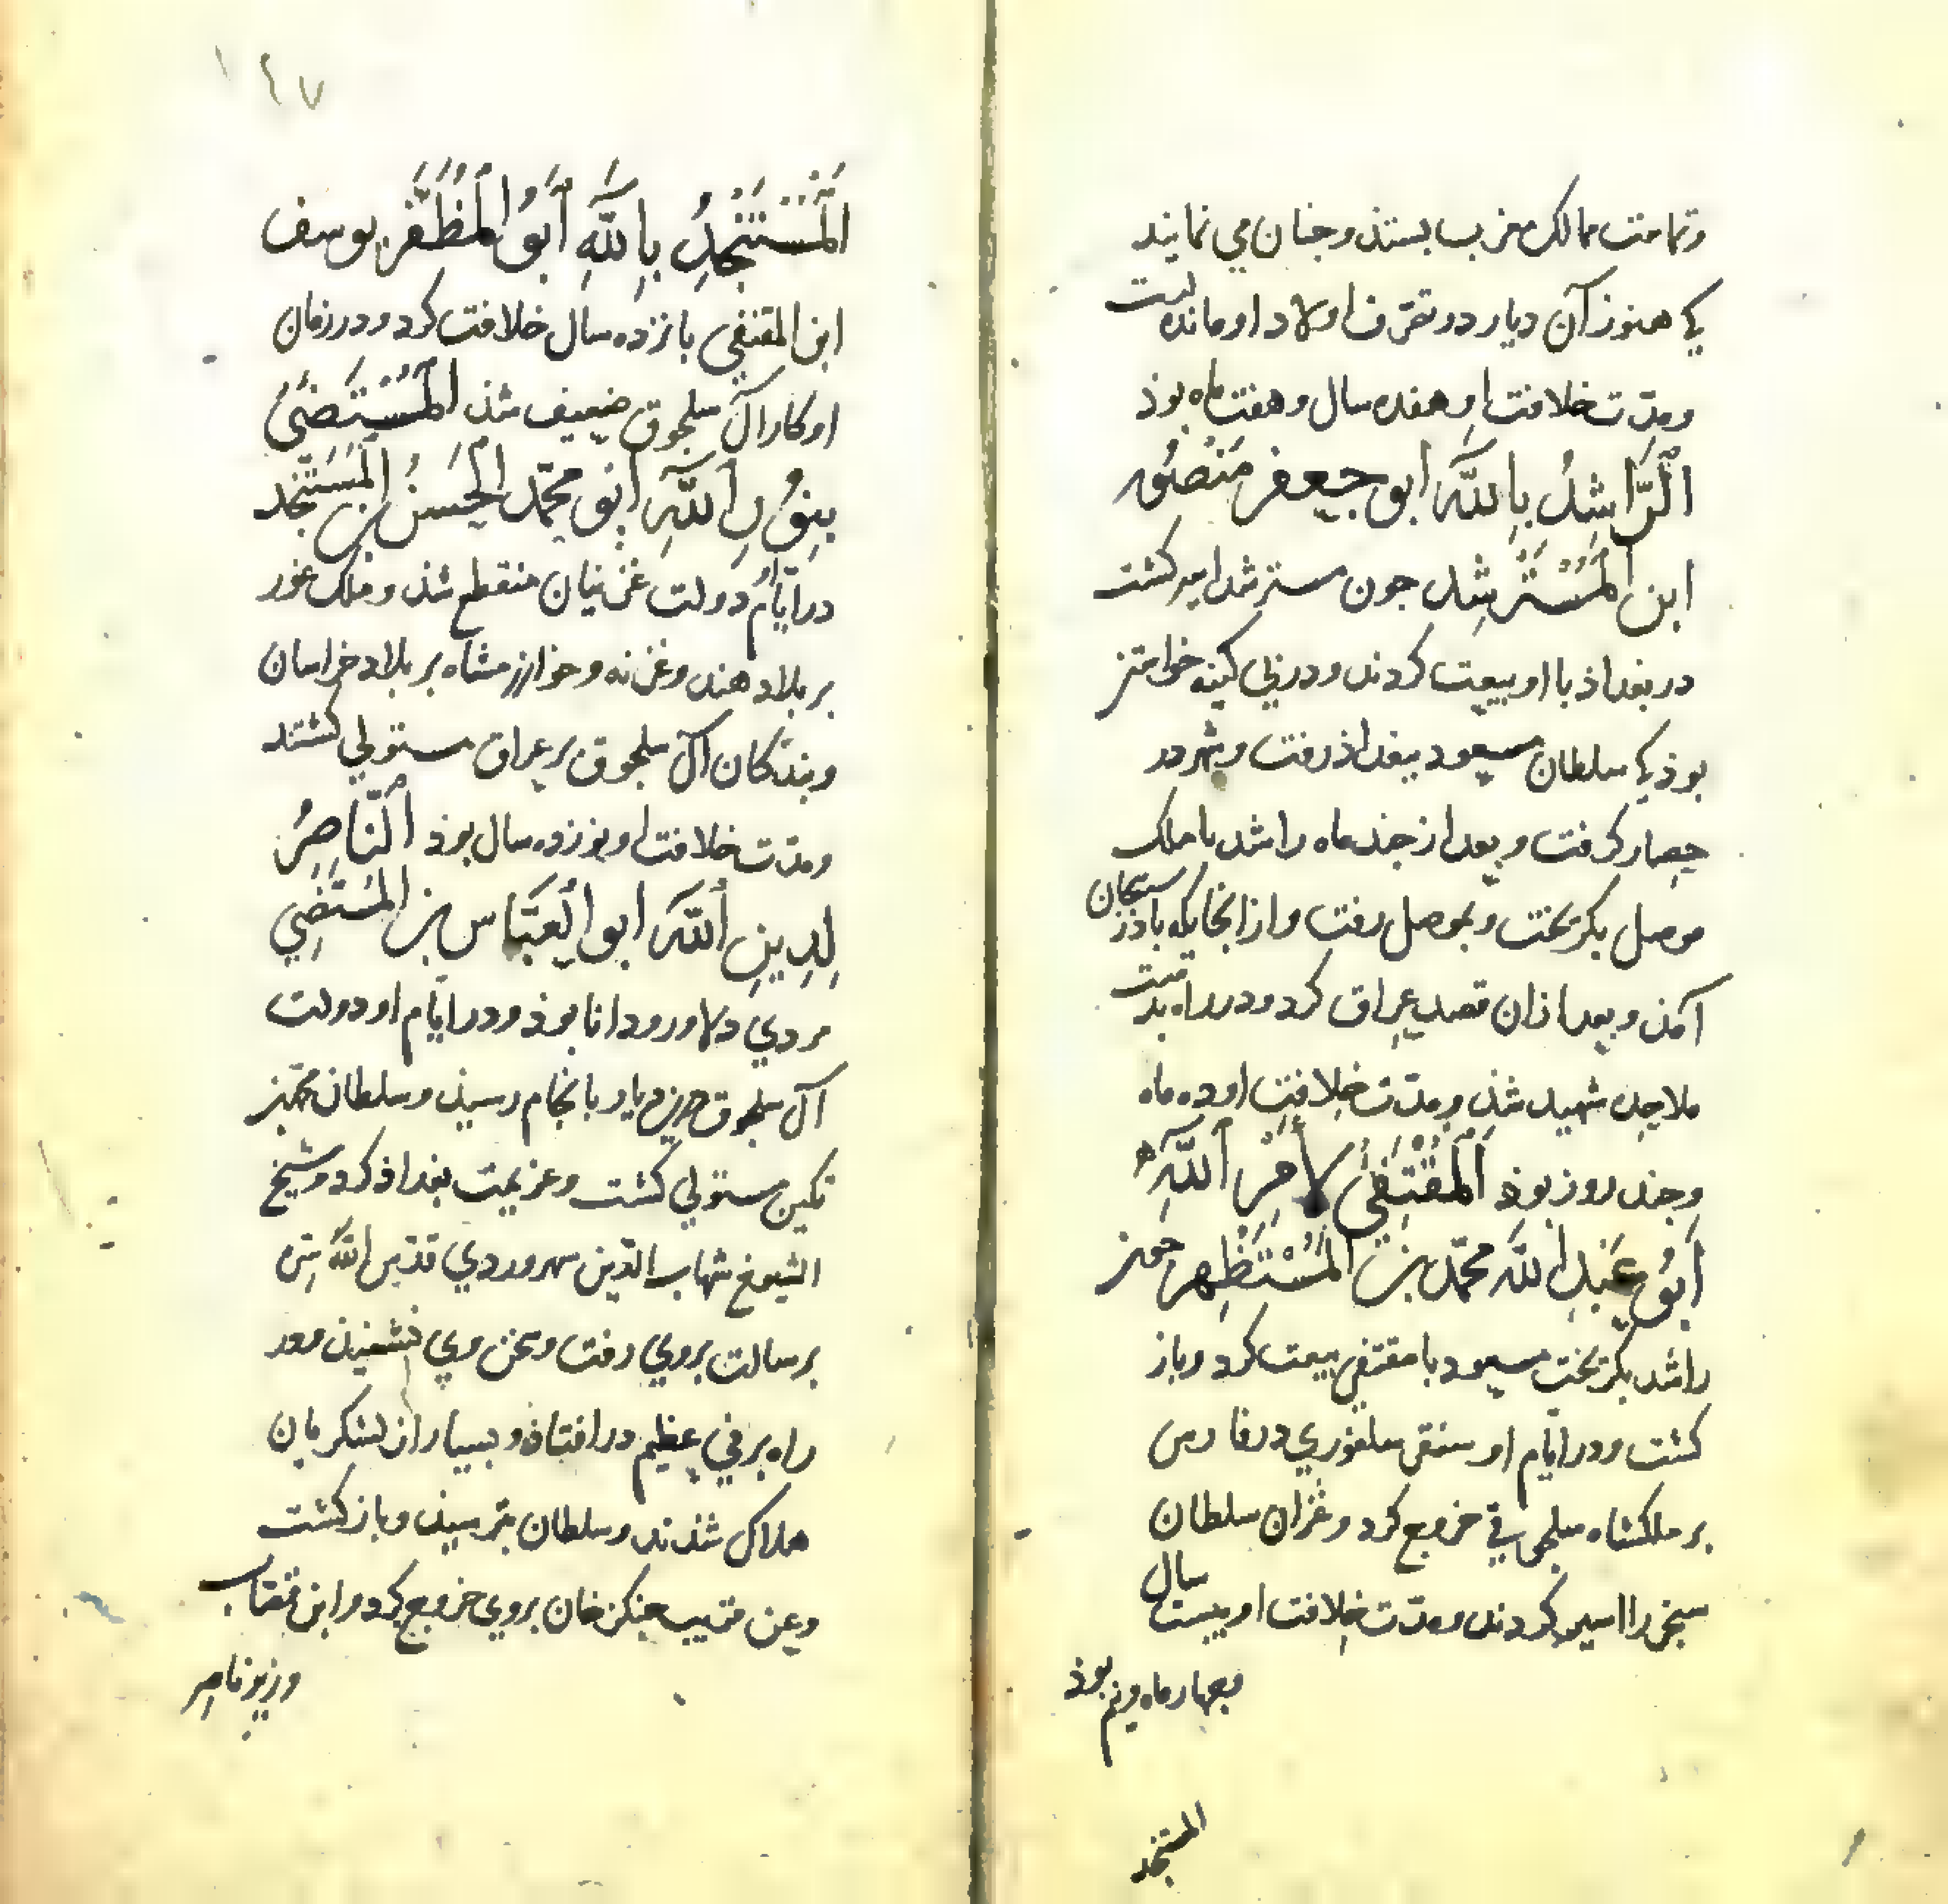 وتمامت ممالک مغرب بستذ و جنان می نمایند
کی هنوز آن دیار در تصرف اولاد او مانده است
ومدّت خلافت او هفده سال و هفت ماه بوذ
اَلرَّاشِدُ بِاللّٰهِ ابو جعفر مَنْصُور
ابن المُسْتَرْشِد جون مسترشد اسیر کشت
در بغداذ با او بیعت کردند و در پی کینه خواستن
بوذ کی سلطان مسعود ببغداذ رفت و شهر در
حصار کرفت و بعد از جند ماه راشد با ملک
موصل بکریخت و بموصل رفت و از انجایکه باذربیجان
آمذ و بعد ازان قصد عراق کرد و در راه بدست
ملاحده شهید شذ و مدّت خلافت او ده ماه
وجند روز بوذ اَلمُقْتَفِیْ لِاَمْرِ اَللّٰهِ
اَبُو عَبْدِ اللّٰه محمّد بن المُسْتَظْهِر جون
راشد بکریخت مسعود با مقتفی بیعت کرد و باز
کشت و در ایّام او سنقر سلغوری در فارس
بر ملکشاه سلجوقی خروج کرد و غزان سلطان
سنجر را اسیر کردند و مدّت خلافت او بیست سال
وچهار ماه و نیم بوذ
المستنجد
١٦٧
اَلمُسْتَنْجِدُ بِاللّٰهِ اَبُو المُظَفَّر یوسف
ابن المقتفی پانزده سال خلافت کرد و در زمان
او کار آل سلجوق ضعیف شذ اَلمُسْتَضِیُٔ
بِنُوْرِ اللّٰهِ ابو محمّد الحَسَنُ بن المُسْتَنْجِد
در ایّام او دولت غزنیان منقطع شذ و ملک غور
بر بلاد هند و غزنه و خوارزمشاه بر بلاد خراسان
وبندکان آل سلجوق بر عراق مستولی کشتند
ومدّت خلافت او نوزده سال بوذ اَلنَّاصِرُ
لِدِینِ اَللّٰه ابو العَبَّاس بن المُسْتَضِی
مردی دلاور و دانا بوذ و در ایّام او دولت
آل سلجوق درین دیار بانجام رسیذ و سلطان محمّد بن
تکین مستولی کشت و عزیمت بغداذ کرد و شیخ
الشیوخ شهاب الدّین سهروردی قدّس اللّٰه سرّه
برسالت بروی رفت و سخن وی نشنیذ و در
راه برفی عظیم در افتاذ و بسیار از لشکریان
هلاک شذند و سلطان بترسیذ و باز کشت
وعن قریب جنکز خان بروی خروج کرد و ابن قصّاب
وزیر ناصر